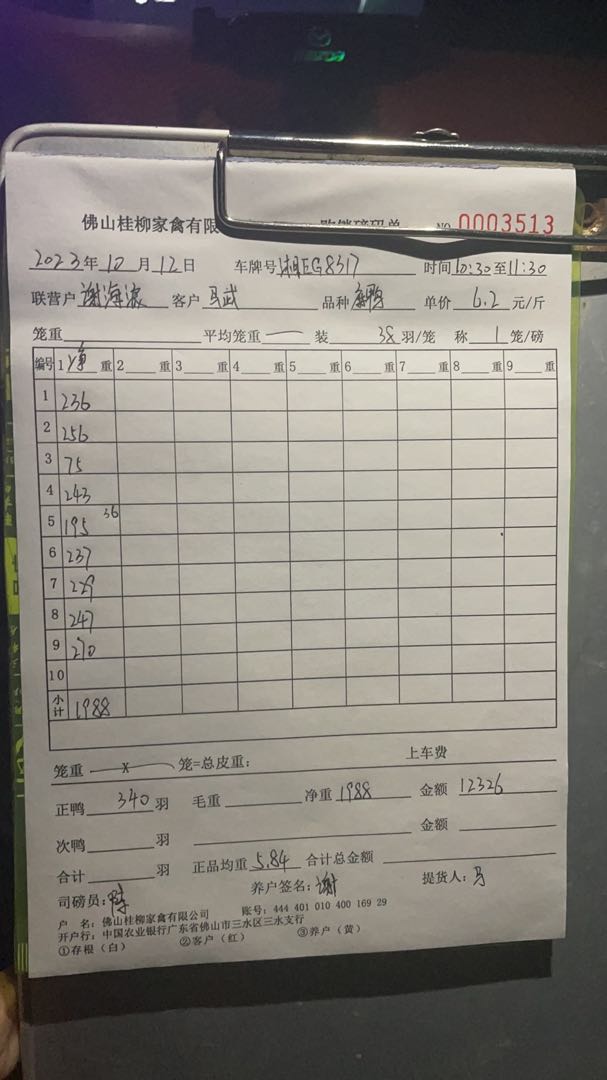 mazda
佛山桂柳家禽有限
购销磅码单 NO 0003513
2023年10月12日 车牌号湘EG8317 时间10:30至11:30
联营户谢海滨 客户马武 品种 单价6.2元/斤
笼重 平均笼重 — 装38羽/笼 称1笼/磅
编号 1净重 2重 3重 4重 5重 6重 7重 8重 9重
1 236
2 256
3 75
4 243
5 195 36
6 237
7 229
8 247
9 270
10
小计 1988
笼重 x 笼=总皮重: 上车费
正鸭340羽 毛重 净重1988 金额12326
次鸭 羽 金额
合计 羽 正品均重5.84 合计总金额
司磅员:陈 养户签名:谢 提货人:马
户 名:佛山桂柳家禽有限公司 账号:444 401 010 400 169 29
开户行:中国农业银行广东省佛山市三水区三水支行
①存根(白) ②客户(红) ③养户(黄)